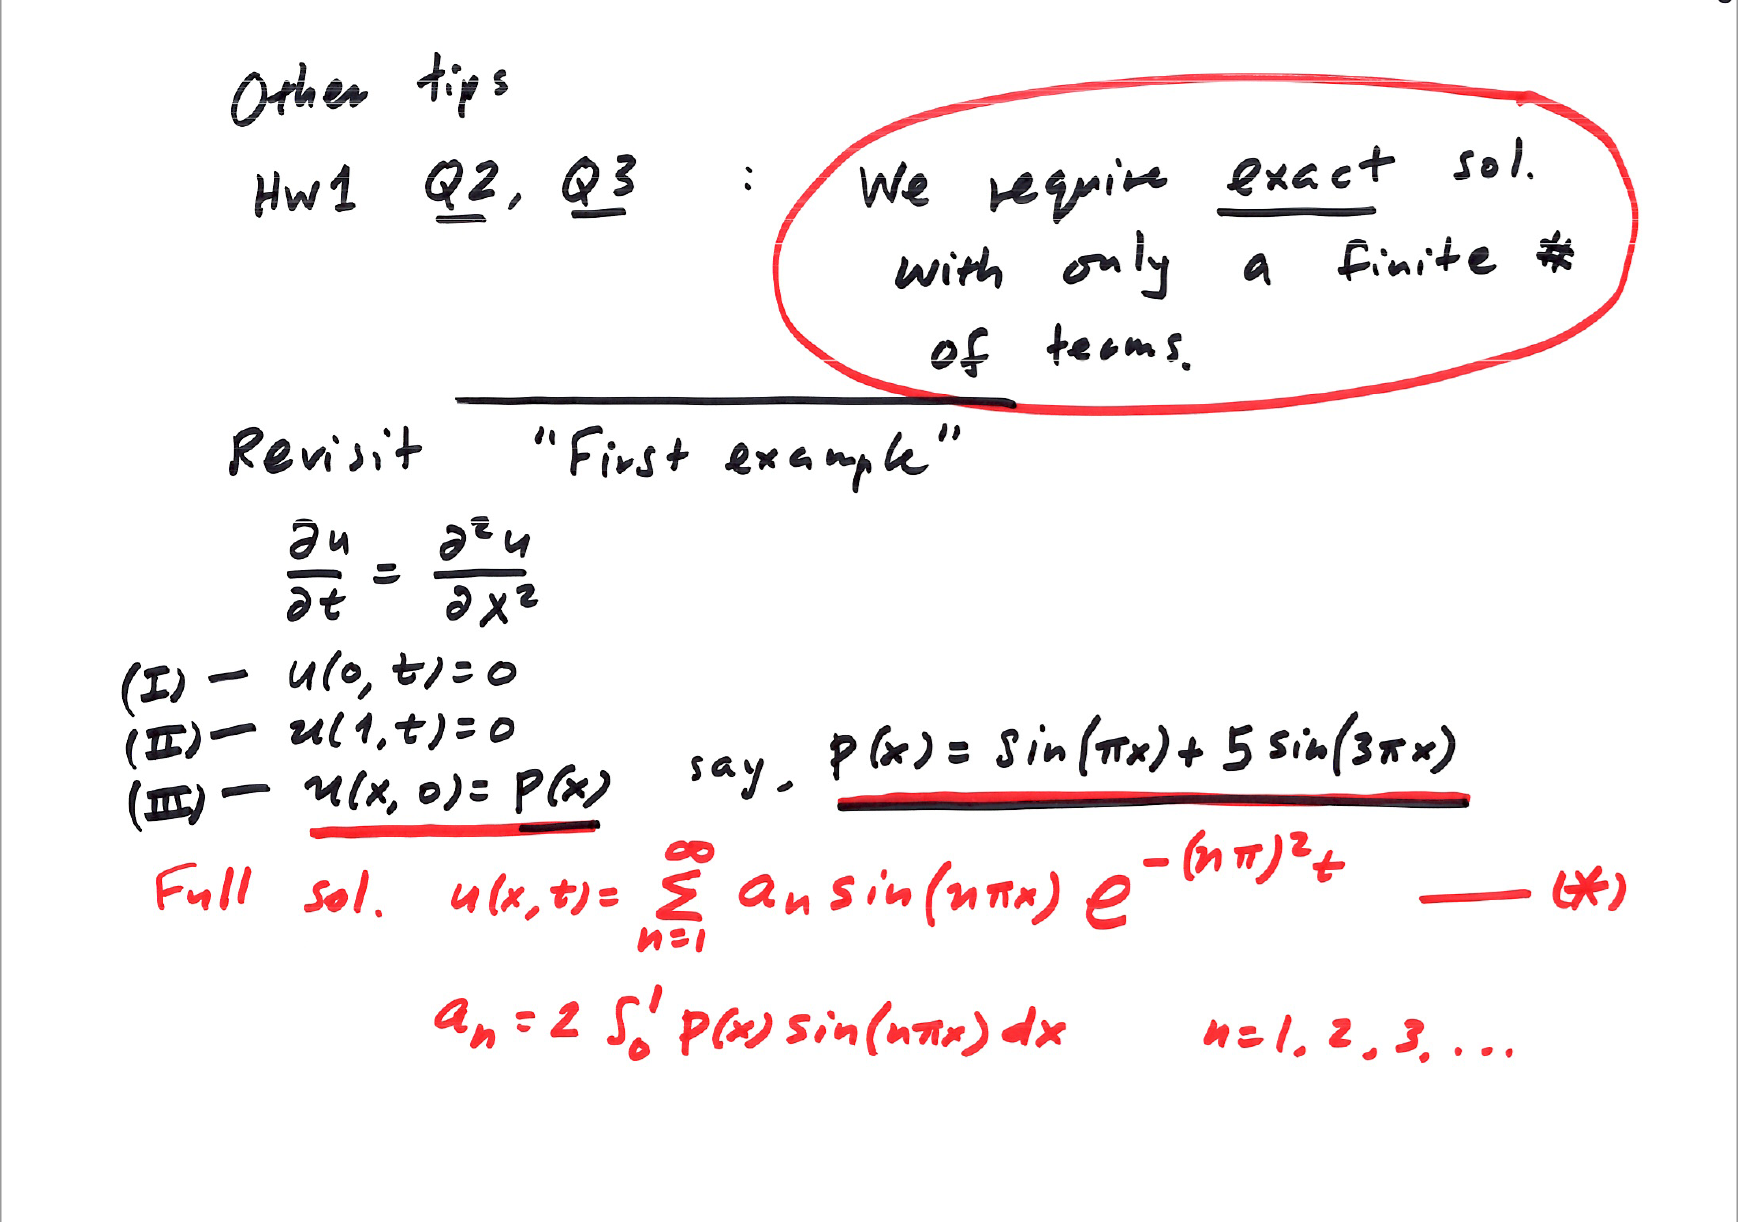 Other tips
HW1 Q2, Q3 : We require exact sol.
with only a finite #
of terms.
Revisit "First example"
∂u/∂t = ∂²u/∂x²
(I) — u(0, t) = 0
(II) — u(1, t) = 0
(III) — u(x, 0) = P(x) say, P(x) = sin(πx) + 5 sin(3πx)
Full sol. u(x, t) = ∑_{n=1}^{∞} a_n sin(nπx) e^{-(nπ)²t} — (*)
a_n = 2 ∫_0^1 P(x) sin(nπx) dx n = 1, 2, 3, ...